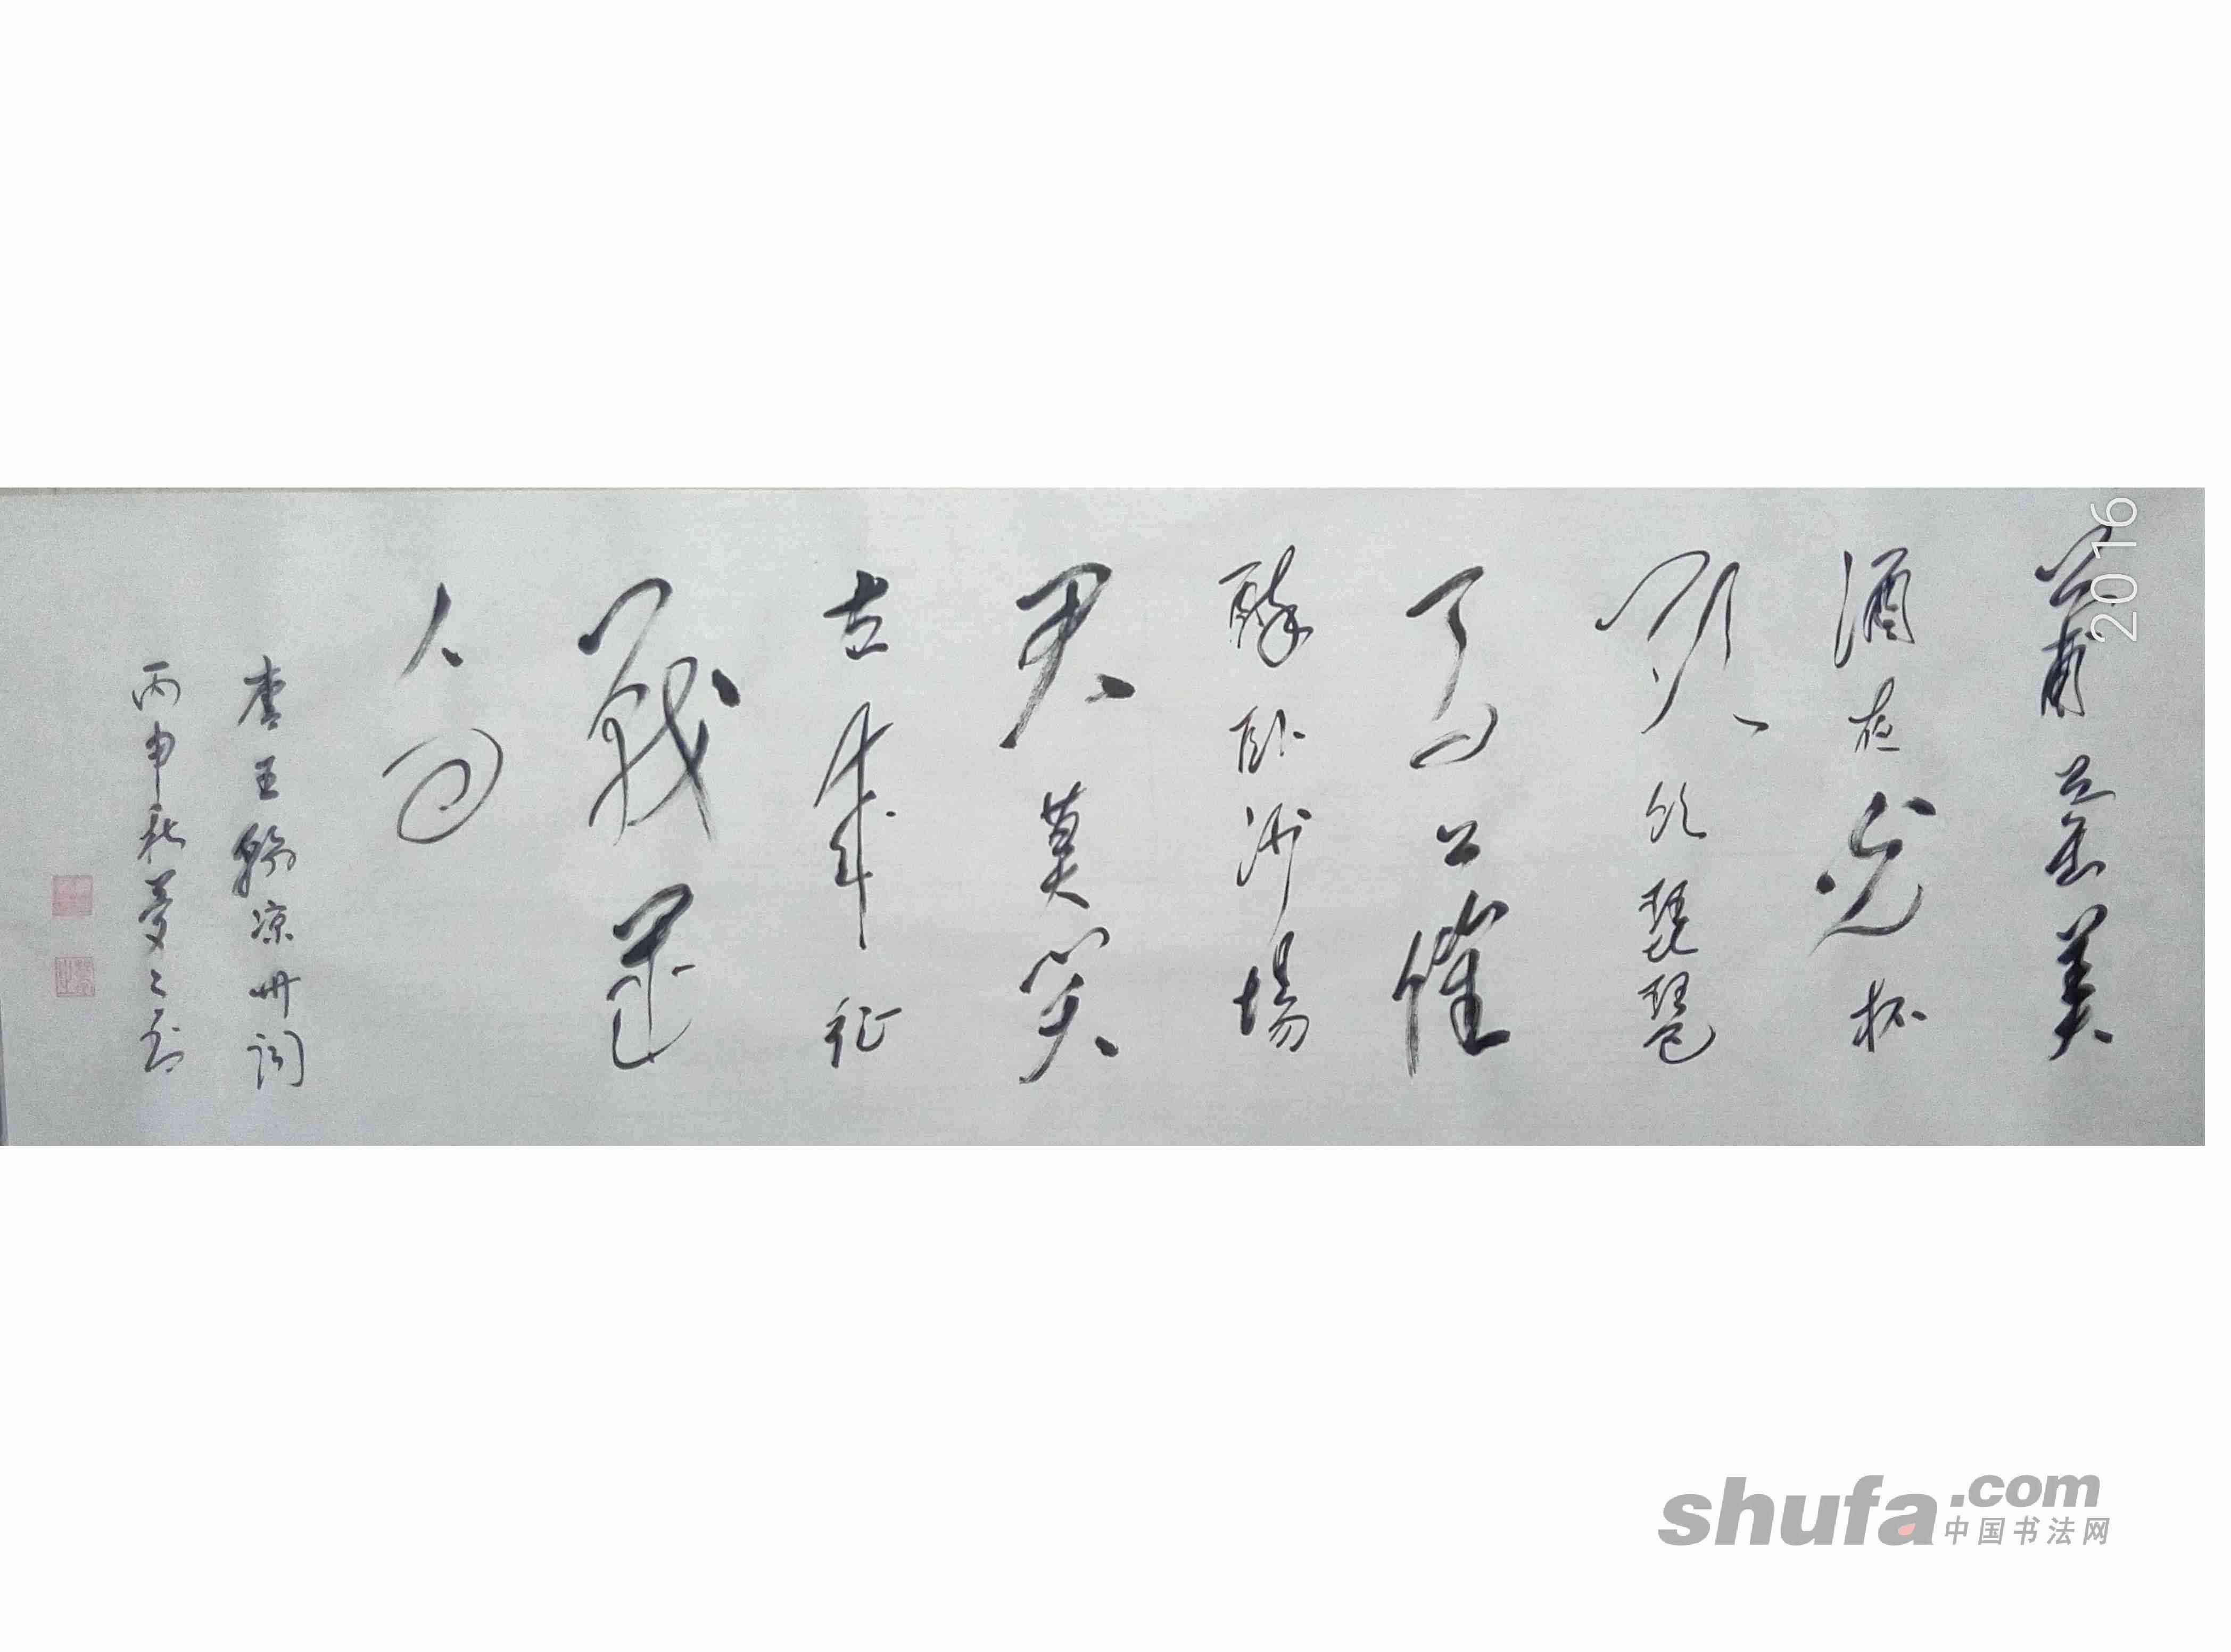 葡萄美
酒夜光杯
欲飲琵琶
馬上催
醉卧沙場
君莫笑
古來征
戰幾
人回
唐王翰凉州词
丙申秋夢之书
2016
shufa.com
中国书法网